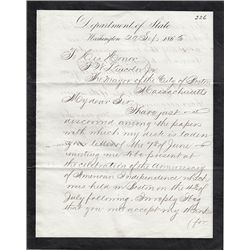 226
Department of State
Washington 20 Feb. 1865
To His Honor
F. W. Lincoln Jr
The Mayor of the City of Boston
Massachusetts
My dear Sir
I have just
discovered among the papers
with which my desk is laden
your letter of the 7th of June
inviting me to be present at
the celebration of the Anniversary
of American Independence
was held in Boston on the 4th of
July following. In reply I beg
that you will accept my thanks
for